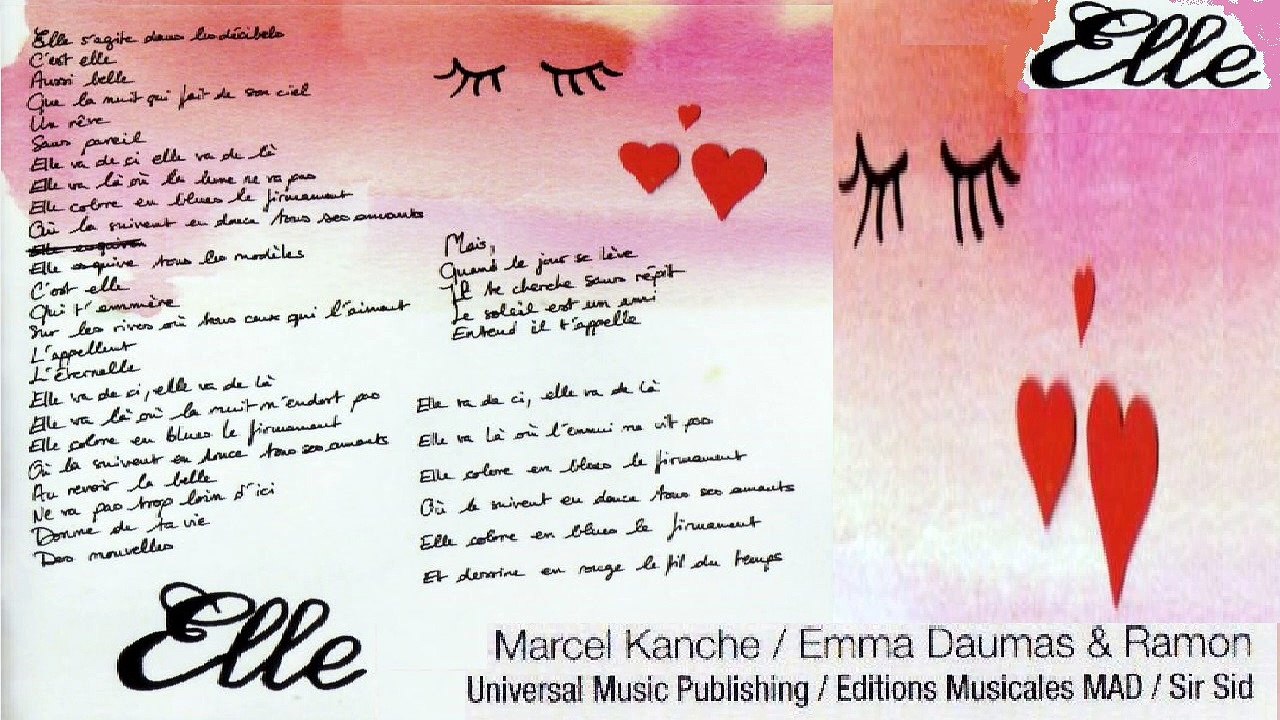 Elle s'agite dans les décibels
C'est elle
Aussi belle
Que la nuit qui fait de son ciel
Un rêve
Sans pareil
Elle va de ci elle va de là
Elle va là où la lune ne va pas
Elle colore en blues le firmament
Où la suivent en douce tous ses amants
Elle esquive
Elle esquive tous les modèles
C'est elle
Qui t'emmène
Sur les rives où tous ceux qui l'aiment
L'appellent
L'Eternelle
Elle va de ci, elle va de là
Elle va là où la nuit n'endort pas
Elle colore en blues le firmament
Où la suivent en douce tous ses amants
Au revoir la belle
Ne va pas trop loin d'ici
Donne de ta vie
Des nouvelles
Mais,
Quand le jour se lève
Il te cherche sans répit
Le soleil est un ami
Entend il t'appelle
Elle va de ci, elle va de là
Elle va là où l'ennui ne vit pas
Elle colore en blues le firmament
Où le suivent en douce tous ses amants
Elle colore en blues le firmament
Et dessine en rouge le fil du temps
Elle
Elle
Marcel Kanche / Emma Daumas & Ramon
Universal Music Publishing / Editions Musicales MAD / Sir Sid